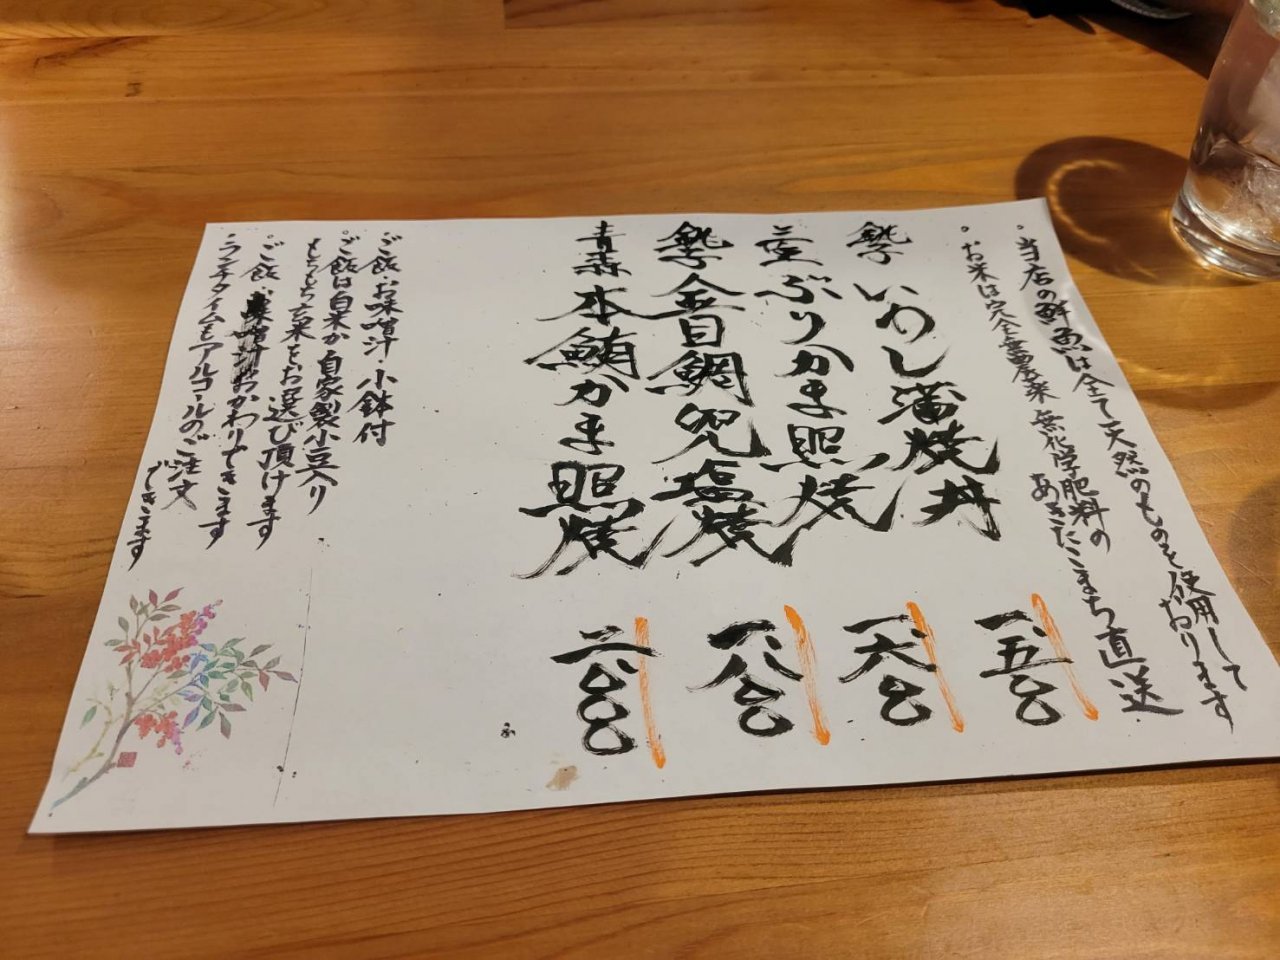 ・当店の鮮魚は全て天然のものを使用して
おります
・お米は完全無農薬 無化学肥料の
あきたこまち直送
銚子 いわし蒲焼丼 一、五〇〇
三重 ぶりかま照焼 一、六〇〇
銚子 金目鯛兜塩焼 一、八〇〇
青森 本鮪かま照焼 二、八〇〇
・ご飯 お味噌汁 小鉢付
・ご飯は白米か自家製小豆入り
もちもち玄米をお選び頂けます
・ご飯、おかわりできます
・ランチタイムもアルコールのご注文
できます